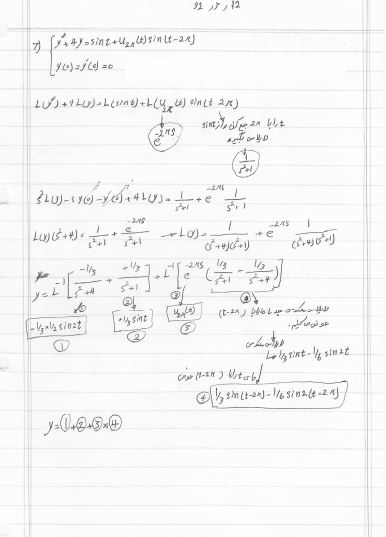 7) { y″ + 4y = sint + u₂π(t) sin(t-2π)
y(0) = y′(0) = 0
L(y″) + 4L(y) = L(sint) + L(u₂π(t) sin(t-2π))
e^-2πs
sint
1/(s²+1)
s²L(y) - sy(0) - y′(0) + 4L(y) = 1/(s²+1) + e^-2πs 1/(s²+1)
L(y)(s²+4) = 1/(s²+1) + e^-2πs/(s²+1) → L(y) = 1/((s²+4)(s²+1)) + e^-2πs 1/((s²+4)(s²+1))
y = L⁻¹[(-1/3)/(s²+4) + (+1/3)/(s²+1)] + L⁻¹[e^-2πs ((1/3)/(s²+1) - (1/3)/(s²+4))]
① ② ③ ④
-1/3×1/2 sin2t
①
+1/3 sint
②
u₂π(t)
③
(t-2π)
1/3 sint - 1/6 sin2t
(t-2π)
④ 1/3 sin(t-2π) - 1/6 sin2(t-2π)
y = ①+②+③×④